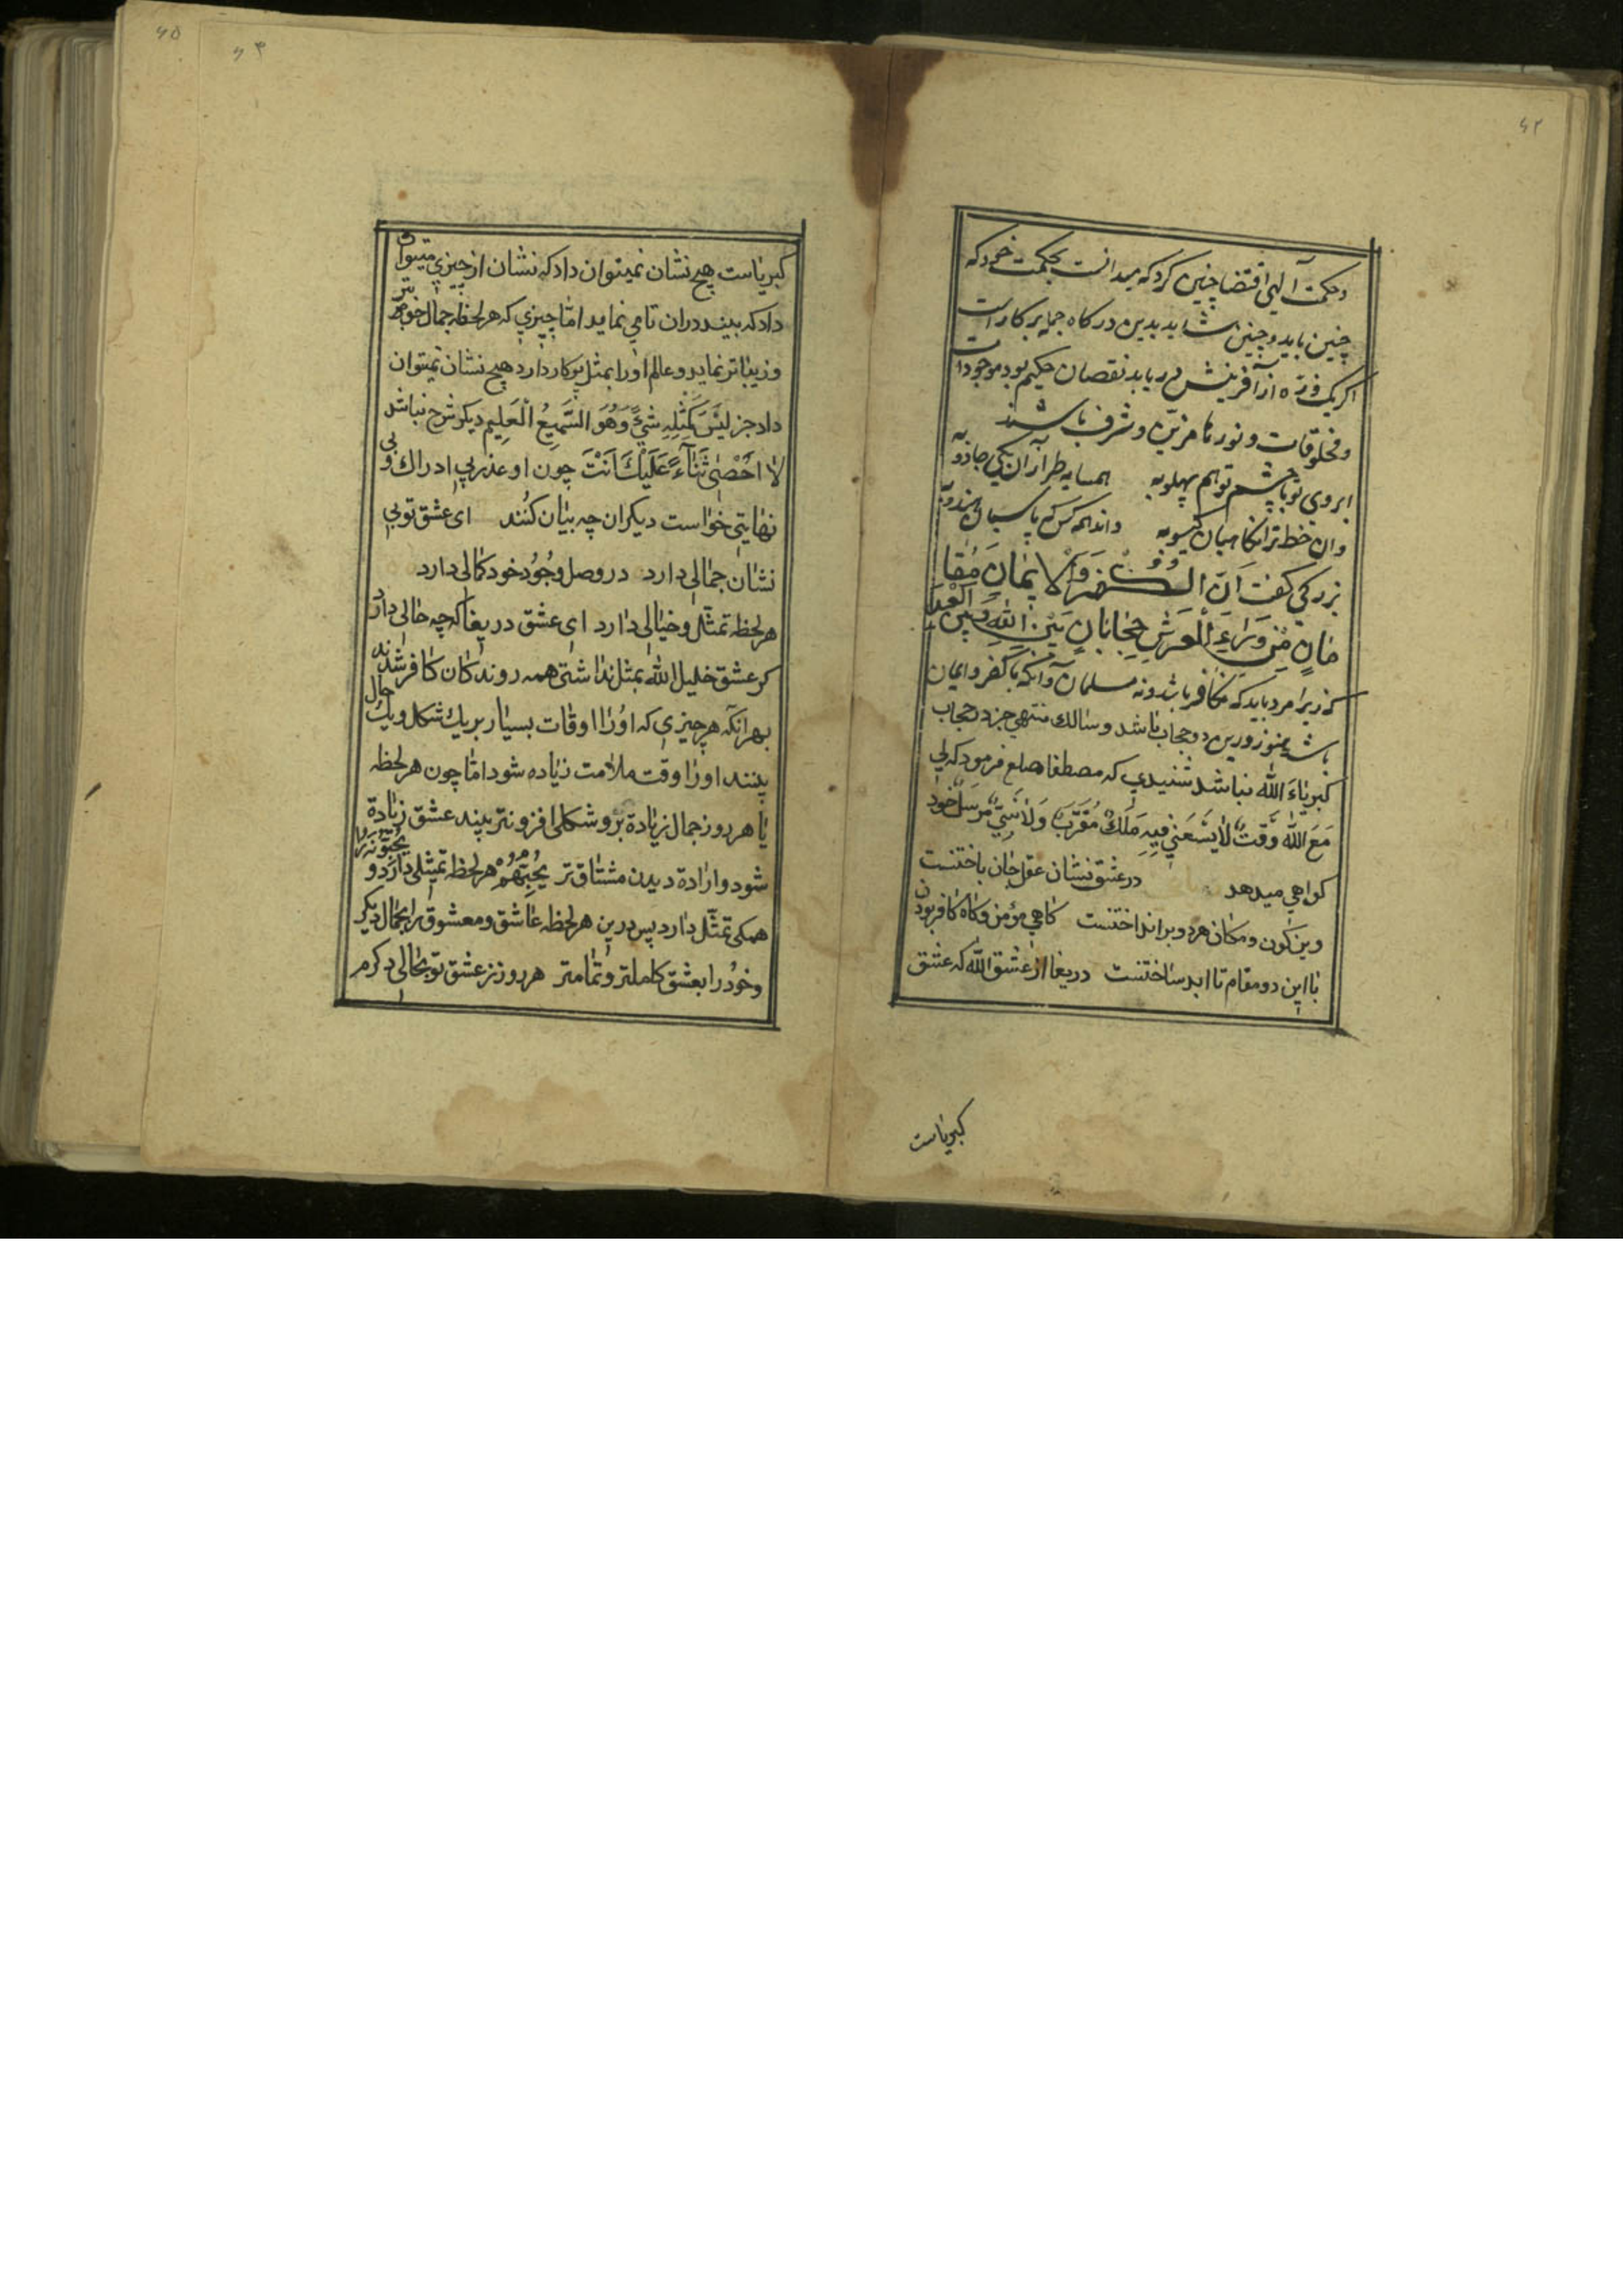 ۶۲
وحکمت آلهی اقتضا چنین کرد که میدانست بحکمت خود که
چنین باید و چنین شاید بدین درکاه جمله برکار است
اکر یک ذرّه از آفرینش در باید نقصان حکیم بود موجودات
ومخلوقات و نورها مزیّن و مشرف باشند
ابروی تو با چشم تو هم پهلو به همسایه طرار آن یکی جادو به
وان خط ترا نکاهبان کیسو به داند همه کس که پاسبان هندو به
بزرکی کفت اِنَّ الکُفْرَ وَالْاِیمَانِ مَقَا
مَانِ مِنْ وَرَاءِ الْعَرْشِ حِجَابَانِ بَیْنَ اللهِ وَبَیْنَ الْعَبْدِ
که زیرا مرد باید که نه کافر باشد و نه مسلمان آنکه با کفر و ایمان
باشد هنوز درین دو حجاب باشد و سالک منتهی جز در حجاب
کبریاءَ الله نباشد شنیدی که مصطفا صلع فرمود که لِی
مَعَ اللهِ وَقتٌ لَایَسَعُنِی فِیهِ مَلَکٌ مُقَرَّبٌ وَلَانَبِیٌّ مُرْسَلٌ خود
کواهی میدهد در عشق نشان عقل جان باختنست
وین کون و مکان هردو برانداختنست کاهی مؤمن و کاه کافر بودن
با این دو مقام تا ابد ساختنست دریغا از عشق الله که عشق
کبریاست
۶۵
۶۳
کبریاست هیچ نشان نمیتوان داد که نشان از چیزی میتوان
داد که بیند در ان تا می نماید امّا چیزی که هر لحظه جمال خوبتر
و زیباتر نماید و عالم اورا بمثل برکار دارد هیچ نشان نمیتوان
داد جز لَیْسَ کَمِثْلِهِ شَیْءٌ وَهُوَ السَّمِیعُ الْعَلِیم دیکر شرح نباشد
لَا اُحْصِی ثَنَاءً عَلَیْکَ اَنْتَ چون او عذر بی ادراکی و بی
نهایتی خواست دیکران چه بیان کنُند ای عشق تو بی
نشان جمالی دارد در وصل وجُوُد خود کمالی دارد
هر لحظه تمثّل و خیالی دارد ای عشق دریغا که چه حالی دارد
کر عشق خلیل الله بمثل نداشتی همه روندکان کافر شدند
بهرانکه هر چیزی که اوُرا اوقات بسیار بریک شکل و یک حال
بینند اورا وقت ملامت زیاده شود امّا چون هر لحظه
یا هر روز جمال زیادة بر و شکلی افزونتر بیند عشق زیادة
شود و ارادة دیدن مشتاق تر یُحِبُّهُمْ هر لحظه تمثّلی دارد و یُحِبُّونَه را
همکی تمثّل دارد پس درین هر لحظه عاشق و معشوق را بجمال دیکر
و خوُد را بعشق کاملتر و تمامتر هر روز ز عشق تو بحالی دکرم